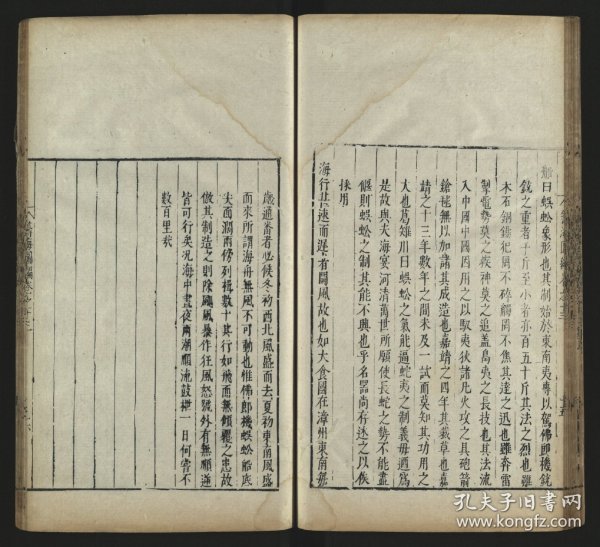 曰蜈蚣象形也其制始於東南夷專以駕佛郎機銃
銃之重者千斤至小者亦百五十斤其法之烈也雖
木石銅錫犯罔不碎觸罔不焦其達之迅也雖奔雷
掣電勢莫之疾神莫之追蓋島夷之長技也其法流
入中國中國因用之以馭夷狄諸凡火攻之具砲箭
鎗毬無以加諸其成造也嘉靖之四年其裁革也嘉
靖之十三年數年之間未及一試而莫知其功用之
大也葛稚川曰蜈蚣之氣能逼蛇夷之制義毋迺爲
是故與夫海宴河清萬世所願使長蛇之勢不能盡
偃則蜈蚣之制其能不興也乎名器尚存述之以俟
採用
海行甚速而遲有闘風故也如大食國在漳州東南舡
歲通番者必候冬初西北風盛而去夏初東南風盛
而來所謂海舟無風不可動也惟佛郎機蜈蚣船底
尖面濶兩傍列楫數十其行如飛而無傾覆之患故
倣其制造之則除颶風暴作狂風怒號外有無順逆
皆可行矣況海中晝夜兩潮順流鼓枻一日何啻不
數百里哉
孔夫子旧书网
www.kongfz.com